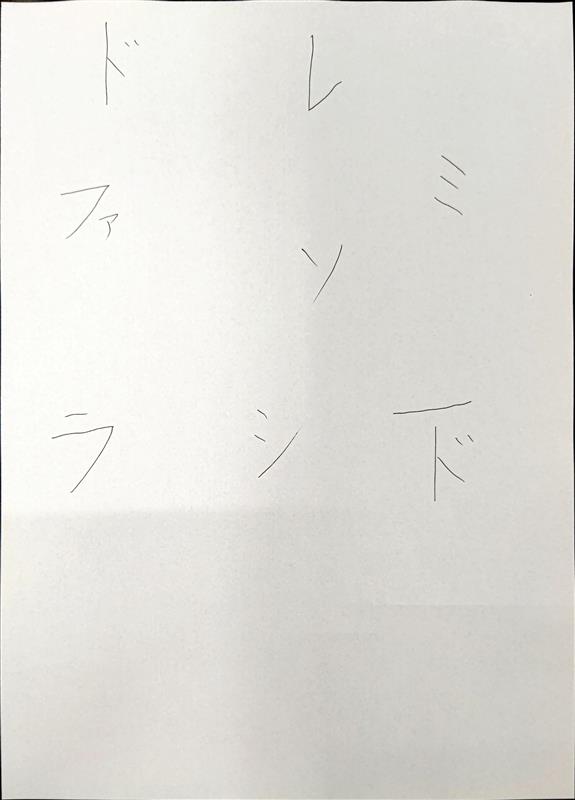 ド レ ミ
ファ ソ
ラ シ ド